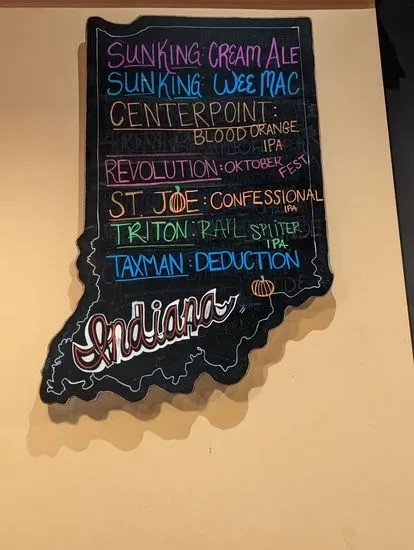 SUNKING: CREAM ALE
SUNKING: WEE MAC
CENTERPOINT:
BLOOD ORANGE
IPA
REVOLUTION: OKTOBER
FEST
ST. JOE: CONFESSIONAL
IPA
TRITON: RAIL SPLITTER
IPA
TAXMAN: DEDUCTION
Indiana